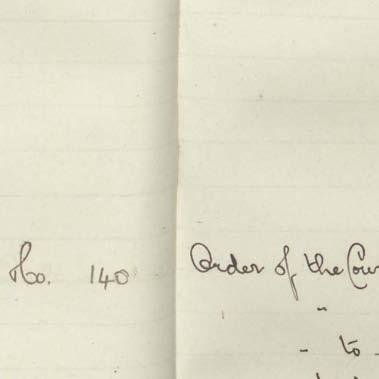 No. 140 Order of the Cour
"
- to -